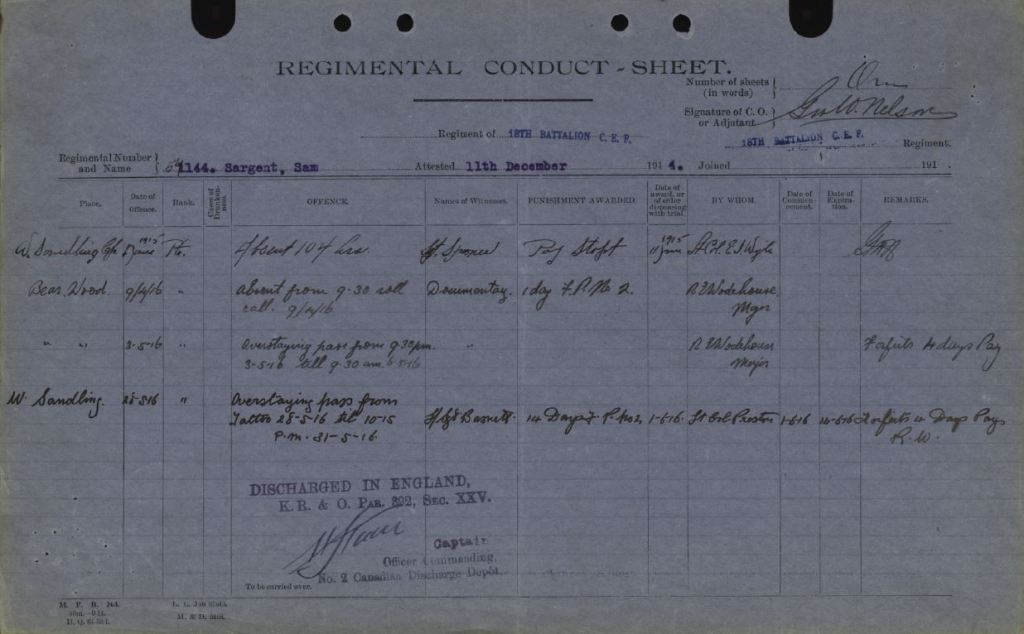 REGIMENTAL CONDUCT-SHEET.
Number of sheets (in words) } One
Signature of C.O. or Adjutant } Geo W. Nelson
Regiment of 18TH BATTALION C.E.F.
18TH BATTALION C.E.F. Regiment.
Regimental Number and Name } 1144. Sargent, Sam Attested 11th December 1914. Joined 191 .
Place. Date of Offence. Rank. Cases of Drunkenness. OFFENCE. Names of Witnesses. PUNISHMENT AWARDED Date of award, or of order dispensing with trial. BY WHOM. Date of Commencement. Date of Expiration. REMARKS.
W. Sandling 1915 June Pte. Absent 104 hrs. Pay Stopt 1915 June
Bear Wood 9/4/16 " Absent from 9.30 roll Documentary. 1 day F.P. No 2. Wodehouse
call. 9/4/16
" " 3-5-16 " Overstaying pass from 9.30 pm. " Wodehouse Forfeits 4 days Pay
3-5-16 till 9.30 am Major
W. Sandling. 28-5-16 " Overstaying pass from
Tattoo 28-5-16 til 10-15 14 Days F.P. No 2 1-6-16 Lt Col Preston 1-6-16 14-6-16 Forfeits 4 Days Pay
P.m. 31-5-16. R.W.
DISCHARGED IN ENGLAND,
K. R. & O. PAR. 392, SEC. XXV.
Captain
Officer Commanding,
No. 2 Canadian Discharge Depôt.
To be carried over.
M. F. B.